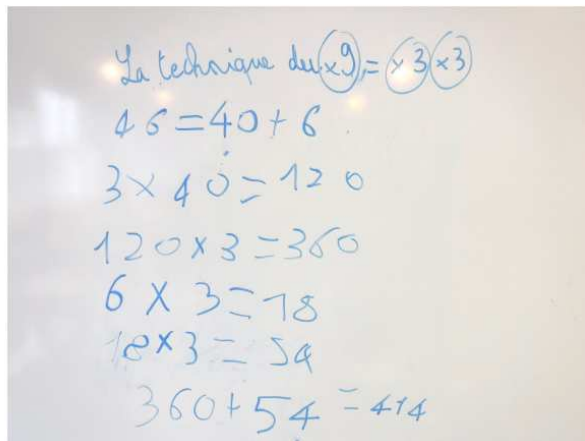 La technique du ×9 = ×3 ×3
46 = 40 + 6
3 × 40 = 120
120 × 3 = 360
6 × 3 = 18
18 × 3 = 54
360 + 54 = 414